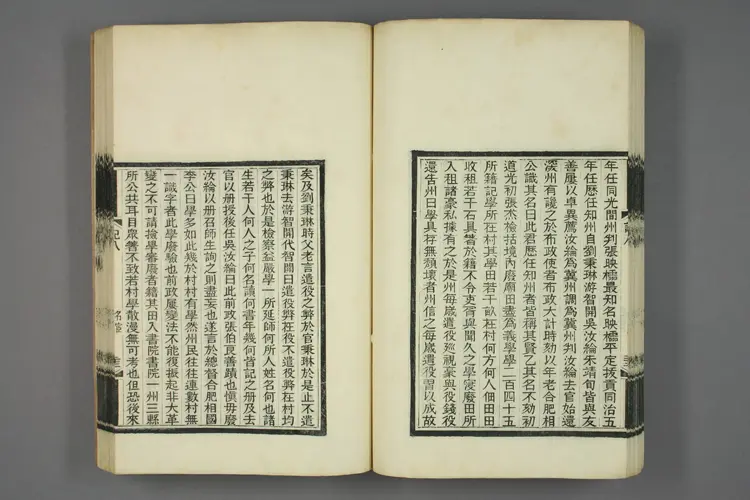 年任同光間州判張映櫺最知名映櫺平定拔貢同治五
年任歷任知州自劉秉琳游智開吳汝綸禾靖旬皆與友
善屢以卓異薦汝綸為冀州調為冀州判汝綸去官始還
深州有讒之於布政使者布政大計時劾以年老合肥相
公識其名曰此君歷任知州者皆稱其賢乙其名不劾初
道光初張杰檢括境內廢廟田盡為義學學二百四十五
所籍記學所在村其學田若干畝在村何方何人佃田田
收租若干石具書於籍不令吏胥與聞久之學寖廢田所
入租諸豪私據有之於是州每歲遣役巡視豪與役錢役
還告州曰學具存無頹壞者州信之每歲遣役習以成故
矣及劉秉琳時父老言遣役之獘於官秉琳於是止不遣
秉琳去游智開代智開曰遣役獘在役不遣役獘在村均
之獘也於是檢察益嚴學一所延師何所人姓名何也諸
生若干人何人之子何名誦何書年幾何皆記之册及去
官以册授後任吳汝綸曰此前政張伯良善蹟也慎毋廢
汝綸以册召師生詢之則盡妄也遂言於總督合肥相國
李公曰學多如此幾於村村有學然州民往往連數村無
一識字者此學廢驗也前政屢變法不能復振起非大革
變之不可請擒學審廢者籍其田入書院書院一州三縣
所公共耳目眾響不致若村學散漫無可考也但恐後來
記八
名宦